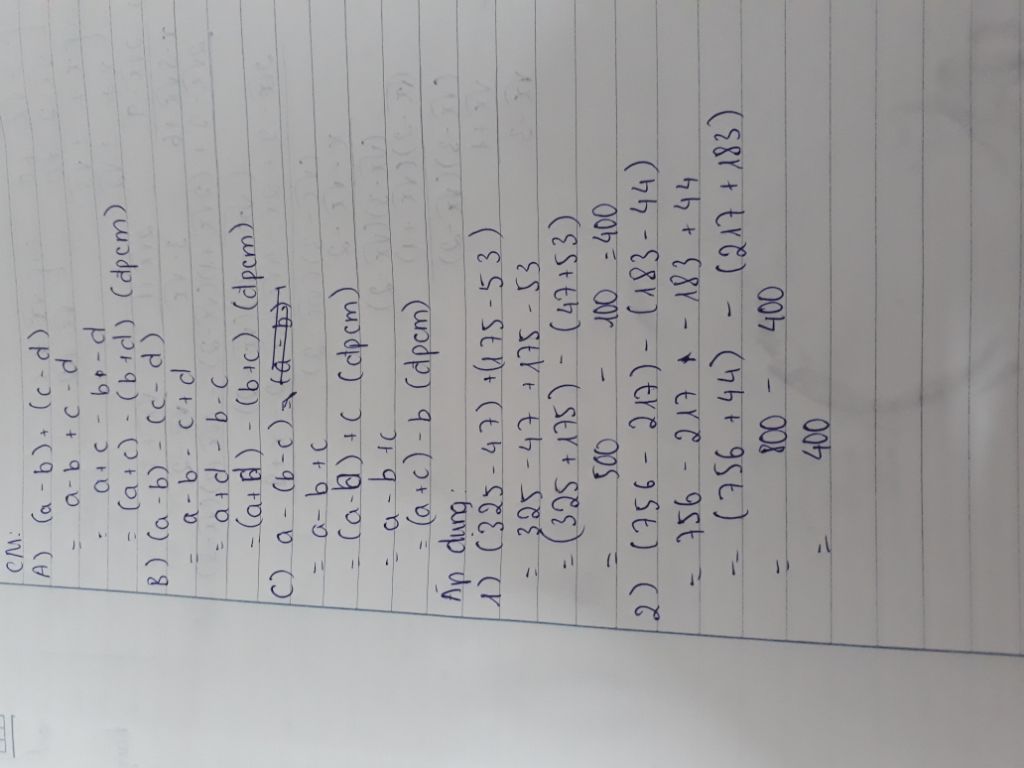 CM:
A) (a - b) + (c - d)
= a - b + c - d
= a + c - b - d
= (a + c) - (b + d) (dpcm)
B) (a - b) - (c - d)
= a - b - c + d
= a + d - b - c
= (a + d) - (b + c) (dpcm).
C) a - (b - c) =
= a - b + c
= (a - b) + c (dpcm)
= a - b + c
= (a + c) - b (dpcm)
Áp dụng:
1) (325 - 47) + (175 - 53)
= 325 - 47 + 175 - 53
= (325 + 175) - (47 + 53)
= 500 - 100 = 400
2) (756 - 217) - (183 - 44)
= 756 - 217 - 183 + 44
= (756 + 44) - (217 + 183)
= 800 - 400
= 400